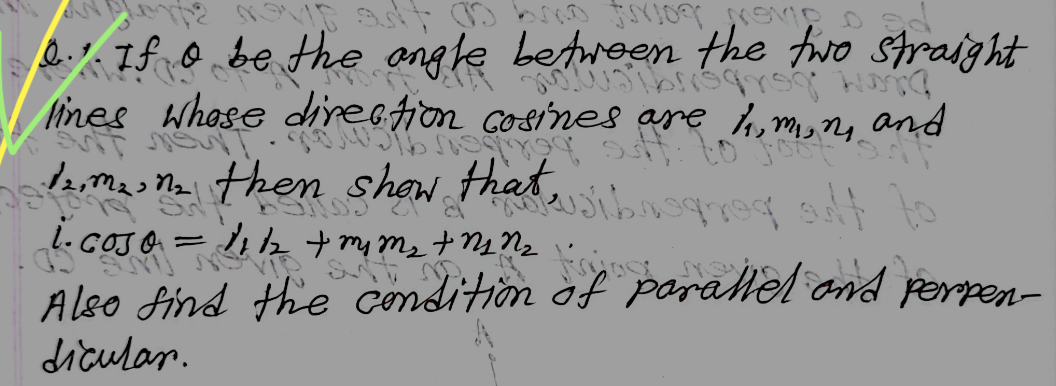 Q.1. If θ be the angle between the two straight
lines whose direction cosines are l₁, m₁, n₁ and
l₂, m₂, n₂ then show that,
i. cos θ = l₁ l₂ + m₁ m₂ + n₁ n₂ .
Also find the condition of parallel and perpen-
dicular.